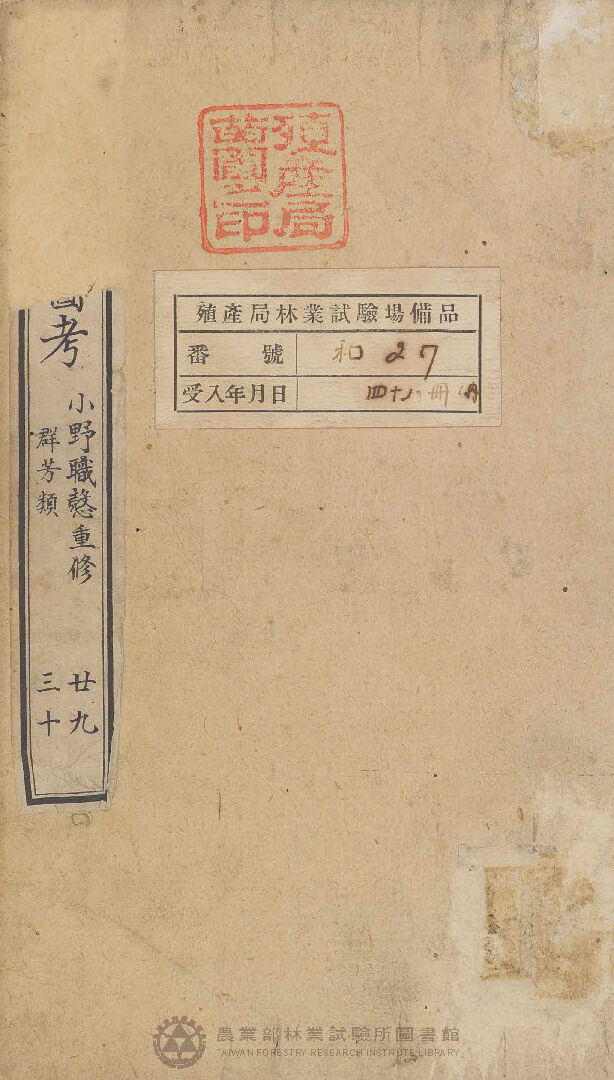 殖產局
苗圃之印
殖產局林業試驗場備品
番號 和 27
受入年月日 四十八冊ノ内
考
小野職愨重修
群芳類
廿九
三十
農業部林業試驗所圖書館
TAIWAN FORESTRY RESEARCH INSTITUTE LIBRARY